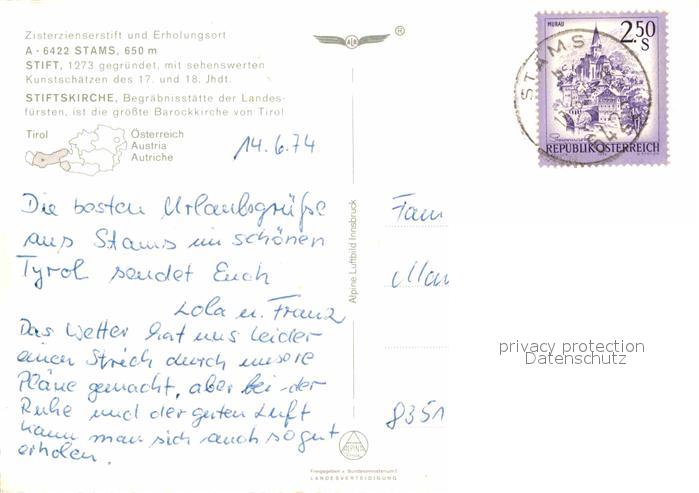 Zisterzienserstift und Erholungsort
A - 6422 STAMS, 650 m
STIFT, 1273 gegründet, mit sehenswerten
Kunstschätzen des 17. und 18. Jhdt.
STIFTSKIRCHE, Begräbnisstätte der Landes-
fürsten, ist die größte Barockkirche von Tirol
Tirol
Österreich
Austria
Autriche
14.6.74
Die besten Urlaubsgrüße
aus Stams im schönen
Tyrol sendet Euch
Lola u. Franz
Das Wetter hat uns leider
einen Strich durch unsere
Pläne gemacht, aber bei der
Ruhe und der guten Luft
kann man sich auch so gut
erholen.
Alpine Luftbild Innsbruck
ALPINE
Freigegeben v. Bundesministerium f.
LANDESVERTEIDIGUNG
®
MURAU
2.50
S
STAMS
REPUBLIK ÖSTERREICH
Fam
8351
privacy protection
Datenschutz